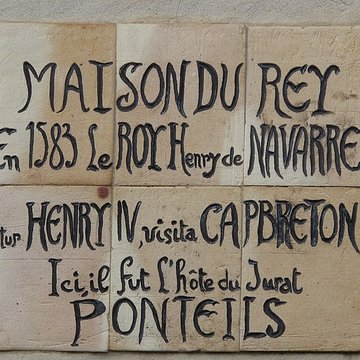 MAISON DU REY
En 1583 Le ROY Henry de NAVARRE
tur HENRY IV, visita CAPBRETON
Ici, il fut l'hôte du Jurat
PONTEILS